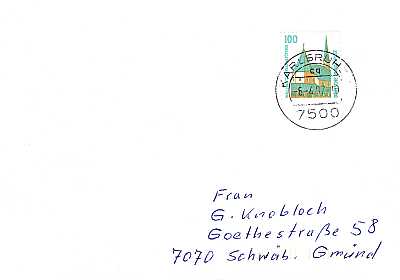 100
KARLSRUHE
7500
Frau
G. Knobloch
Goethestraße 58
7070 Schwäb. Gmünd